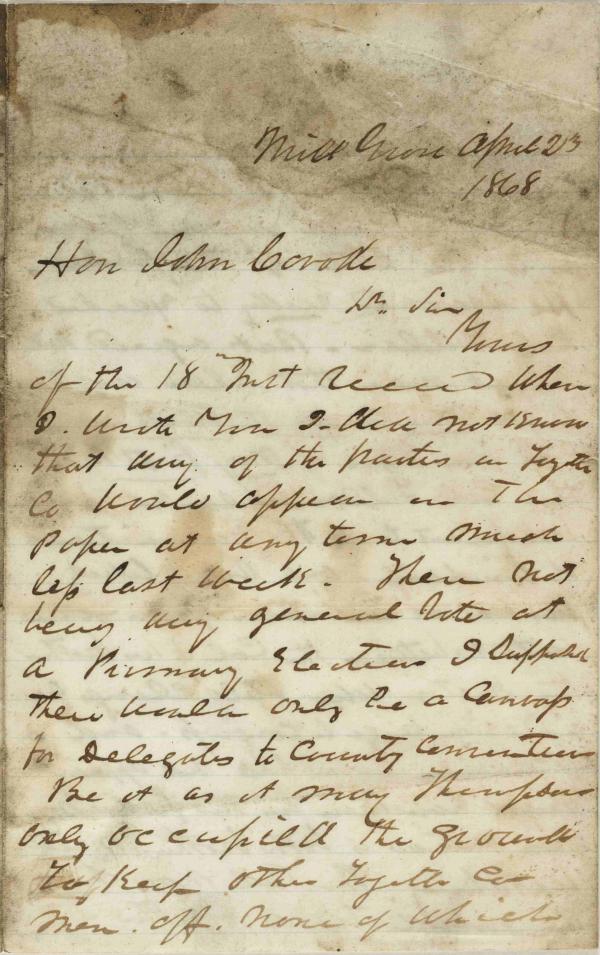 Mill Grove April 23
1868
Hon John Covode
Dr. Sir
Yours
of the 18th Inst Received When
I. wrote You I did not Know
that any of the parties in Fayette
Co would appear in The
Paper at any time much
less last week. There not
being any general Vote at
a Primary Election I Supposed
there would only be a Canvass
for Delegates to County Convention
Be it as it may Thompson
only occupied the ground
to Keep other Fayette Co
men. off. None of Which